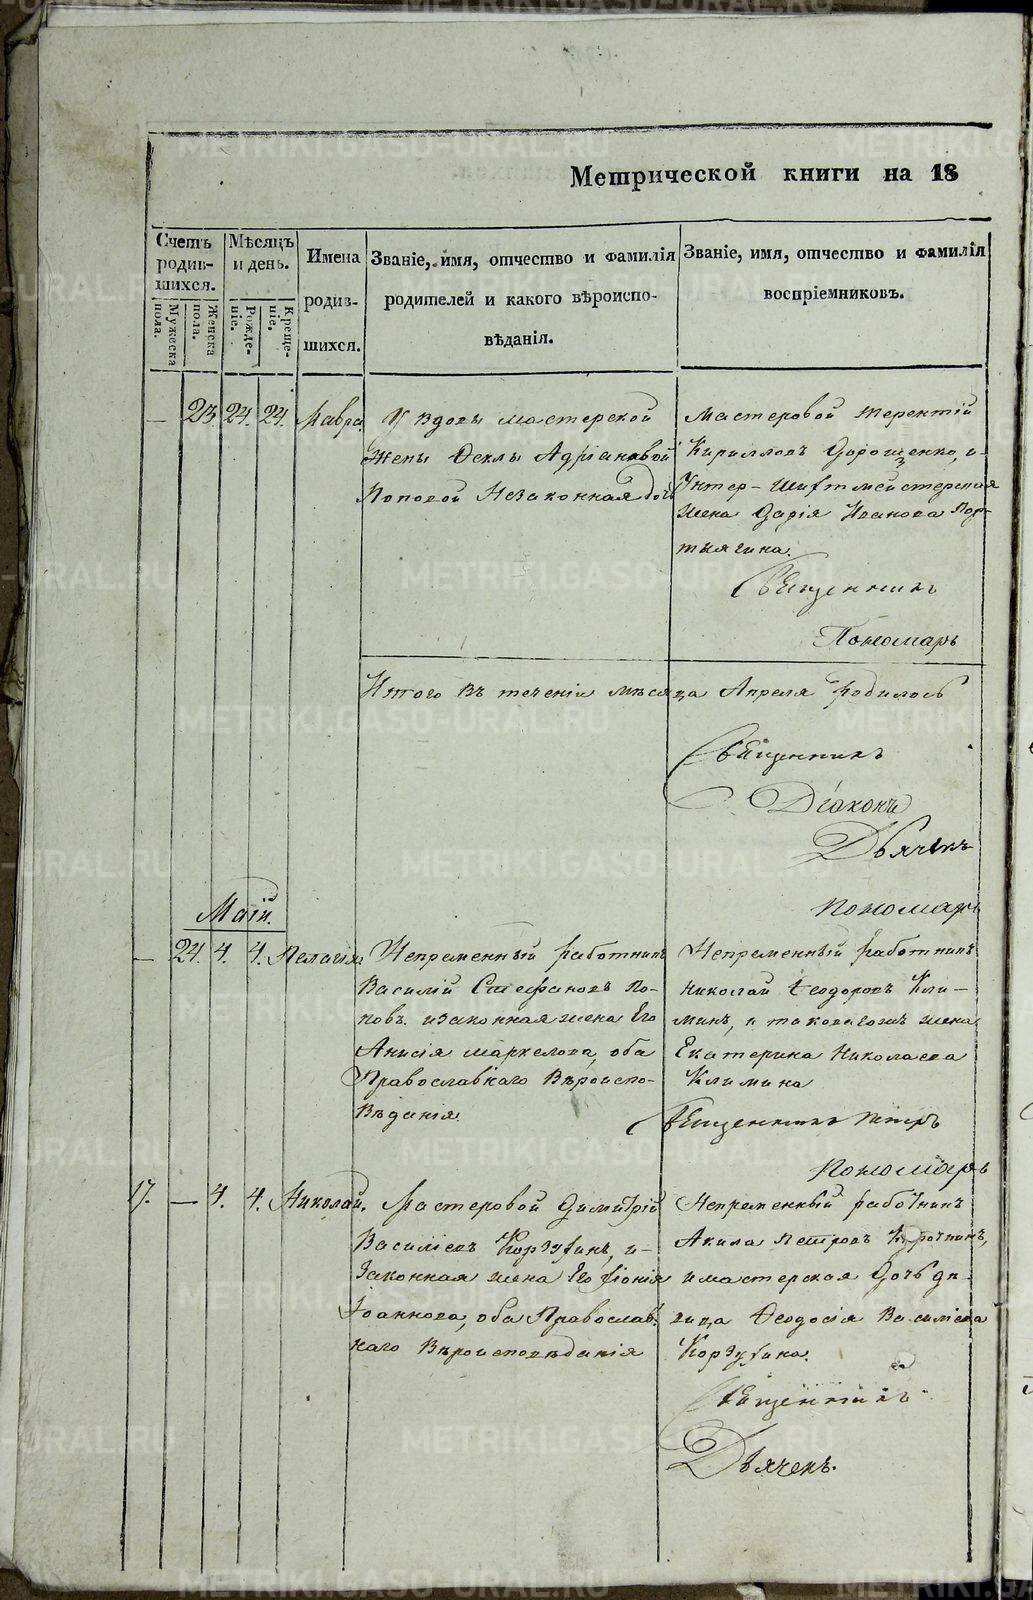 Метрической книги на 18
Счетъ родив-шихся.
Мужеска пола.
Женска пола.
Мѣсяцъ и день.
Рожде-ніе.
Креще-ніе.
Имена родив-шихся.
Званіе, имя, отчество и фамилія
родителей и какого вѣроиспо-
вѣданія.
Званіе, имя, отчество и фамилія
воспріемниковъ.
— 23. 24. 24. Мавра.
У вдовы мастерской
жены Феклы Адріановой
Поповой незаконная дочь
Мастеровой Терентій
Кирилловъ Дорощенко, и
Унтер-шихтмейстерская
жена Дарія Иванова Пор-
тыягина.
Священникъ
Пономарь
Итого въ теченіи мѣсяца Апреля родилось
Священникъ
Діаконъ
Дьячекъ
Пономарь
Маій.
— 24. 4. 4. Пелагія
Непременный работникъ
Василій Стефановъ По-
повъ и законная жена Его
Анисія Маркелова, оба
Православнаго Вѣроиспо-
вѣданія.
Непременный работникъ
Николай Феодоровъ Кли-
минъ, и таковагожъ жена
Екатерина Николаева
Климина
Священникъ Петръ
Пономарь
17. — 4. 4. Николай.
Мастеровой Димитрій
Василіевъ Корзухинъ, и
Законная жена Его
Іоаннова, оба Православ-
наго Вѣроисповѣданія
Непременный работникъ
Акила Петровъ
и мастерская дочь дѣ-
вица Феодосія Василіева
Корзухина.
Священникъ
Дьячекъ.
METRIKI.GASO-URAL.RU